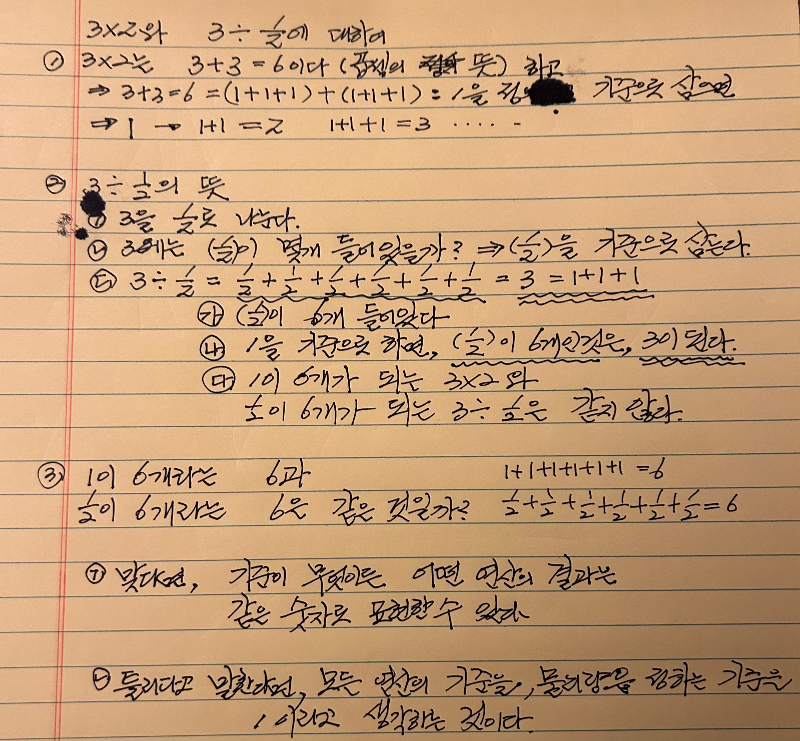 3×2와 3÷1/2에 대하여
① 3×2는 3+3=6이다 (곱셈의 뜻) 하고
⇒ 3+3=6=(1+1+1)+(1+1+1) : 1을 기준으로 삼으면
⇒ 1 → 1+1=2 1+1+1=3 ‥‥‥
② 3÷1/2의 뜻
㉠ 3을 1/2로 나눈다.
㉡ 3에는 (1/2)이 몇개 들어있을까? ⇒(1/2)을 기준으로 삼는다.
㉢ 3÷1/2 = 1/2+1/2+1/2+1/2+1/2+1/2 = 3 = 1+1+1
㉮ (1/2)이 6개 들어있다
㉯ 1을 기준으로 하면, (1/2)이 6개인것은, 3이 된다.
㉰ 1이 6개가 되는 3×2와
1/2이 6개가 되는 3÷1/2은 같지 않다.
③ 1이 6개라는 6과 1+1+1+1+1+1=6
1/2이 6개라는 6은 같은 것일까? 1/2+1/2+1/2+1/2+1/2+1/2=6
㉠ 맞다면, 기준이 무엇이든 어떤 연산의 결과는
같은 숫자로 표현할 수 있다
㉡ 틀리다고 말한다면, 모든 연산의 기준을, 물리량을 정하는 기준을
1이라고 생각하는 것이다.